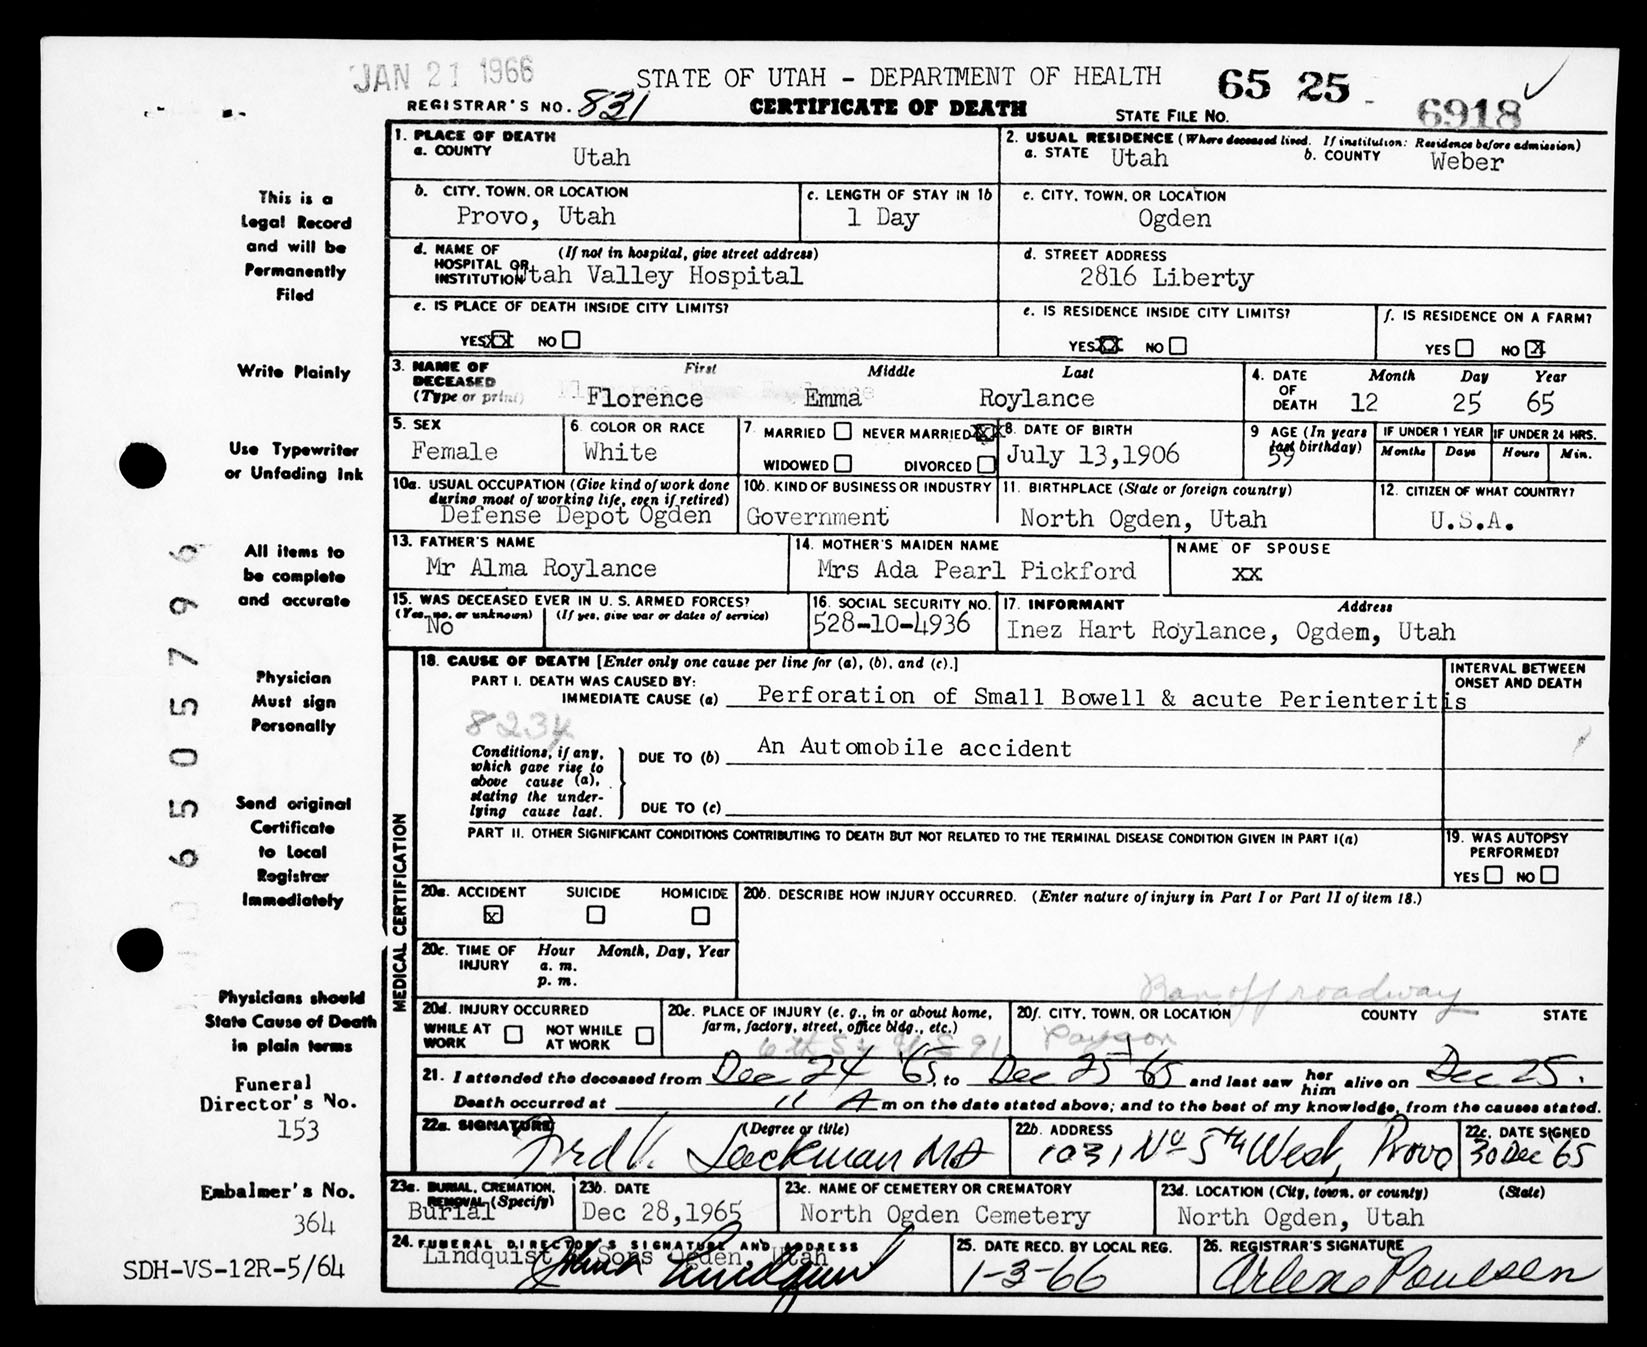 JAN 21 1966
STATE OF UTAH - DEPARTMENT OF HEALTH
65 25 - 6918
REGISTRAR'S NO. 831
CERTIFICATE OF DEATH
STATE FILE NO.
1. PLACE OF DEATH
a. COUNTY Utah
2. USUAL RESIDENCE (Where deceased lived. If institution: Residence before admission)
a. STATE Utah b. COUNTY Weber
b. CITY, TOWN, OR LOCATION
Provo, Utah
c. LENGTH OF STAY IN 1b
1 Day
c. CITY, TOWN, OR LOCATION
Ogden
d. NAME OF HOSPITAL OR INSTITUTION (If not in hospital, give street address)
Utah Valley Hospital
d. STREET ADDRESS
2816 Liberty
e. IS PLACE OF DEATH INSIDE CITY LIMITS?
YES XX NO
e. IS RESIDENCE INSIDE CITY LIMITS?
YES XX NO
f. IS RESIDENCE ON A FARM?
YES NO X
3. NAME OF DECEASED (Type or print)
First Middle Last
Florence Emma Roylance
4. DATE OF DEATH Month Day Year
12 25 65
5. SEX
Female
6 COLOR OR RACE
White
7 MARRIED NEVER MARRIED XX
WIDOWED DIVORCED
8. DATE OF BIRTH
July 13,1906
9 AGE (In years last birthday)
59
IF UNDER 1 YEAR
Months Days
IF UNDER 24 HRS.
Hours Min.
10a. USUAL OCCUPATION (Give kind of work done during most of working life, even if retired)
Defense Depot Ogden
10b. KIND OF BUSINESS OR INDUSTRY
Government
11. BIRTHPLACE (State or foreign country)
North Ogden, Utah
12. CITIZEN OF WHAT COUNTRY?
U.S.A.
13. FATHER'S NAME
Mr Alma Roylance
14. MOTHER'S MAIDEN NAME
Mrs Ada Pearl Pickford
NAME OF SPOUSE
XX
15. WAS DECEASED EVER IN U. S. ARMED FORCES?
(Yes, no, or unknown) (If yes, give war or dates of service)
No
16. SOCIAL SECURITY NO.
528-10-4936
17. INFORMANT Address
Inez Hart Roylance, Ogdem, Utah
MEDICAL CERTIFICATION
18. CAUSE OF DEATH [Enter only one cause per line for (a), (b), and (c).]
PART I. DEATH WAS CAUSED BY:
IMMEDIATE CAUSE (a) Perforation of Small Bowell & acute Perienteritis
INTERVAL BETWEEN ONSET AND DEATH
8234
Conditions, if any, which gave rise to above cause (a), stating the underlying cause last.
DUE TO (b) An Automobile accident
DUE TO (c)
PART II. OTHER SIGNIFICANT CONDITIONS CONTRIBUTING TO DEATH BUT NOT RELATED TO THE TERMINAL DISEASE CONDITION GIVEN IN PART I(a)
19. WAS AUTOPSY PERFORMED?
YES NO
20a. ACCIDENT SUICIDE HOMICIDE
X
20b. DESCRIBE HOW INJURY OCCURRED. (Enter nature of injury in Part I or Part II of item 18.)
Ran off roadway
20c. TIME OF INJURY Hour Month, Day, Year
a. m.
p. m.
20d. INJURY OCCURRED
WHILE AT WORK NOT WHILE AT WORK
20e. PLACE OF INJURY (e. g., in or about home, farm, factory, street, office bldg., etc.)
6th St U S 91
20f. CITY, TOWN, OR LOCATION COUNTY STATE
Payson
21. I attended the deceased from Dec 24 '65, to Dec 25 '65 and last saw her him alive on Dec 25.
Death occurred at 11 A m on the date stated above; and to the best of my knowledge, from the causes stated.
22a. SIGNATURE (Degree or title)
MD
22b. ADDRESS
1031 No 5th West, Provo
22c. DATE SIGNED
30 Dec 65
23a. BURIAL, CREMATION, REMOVAL (Specify)
Burial
23b. DATE
Dec 28,1965
23c. NAME OF CEMETERY OR CREMATORY
North Ogden Cemetery
23d. LOCATION (City, town, or county) (State)
North Ogden, Utah
24. FUNERAL DIRECTOR'S SIGNATURE AND ADDRESS
Lindquist & Sons Ogden, Utah
25. DATE RECD. BY LOCAL REG.
1-3-66
26. REGISTRAR'S SIGNATURE
Arlene Poulsen
This is a
Legal Record
and will be
Permanently
Filed
Write Plainly
Use Typewriter
or Unfading Ink
All items to
be complete
and accurate
Physician
Must sign
Personally
Send original
Certificate
to Local
Registrar
Immediately
Physicians should
State Cause of Death
in plain terms
Funeral
Director's No.
153
Embalmer's No.
364
SDH-VS-12R-5/64